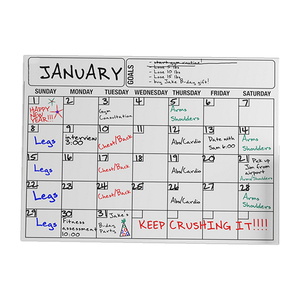 JANUARY
GOALS
- start gym routine!
- Lose 5 lbs
- Lose 10 lbs
- Lose 15 lbs
- buy Jake B-day gift!
SUNDAY MONDAY TUESDAY WEDNESDAY THURSDAY FRIDAY SATURDAY
1 2 3 4 5 6 7
HAPPY
NEW
YEAR!!!
Gym
Consultation
Arms
Shoulders
8 9 10 11 12 13 14
Legs
Interview
3:00
Chest/Back
Abs/Cardio
Date with
Sam 6:00
Arms
Shoulders
15 16 17 18 19 20 21
Legs
Chest/Back
Abs/Cardio
Pick up
Jim from
airport
Arms/Shoulders
22 23 24 25 26 27 28
Legs
Chest/Back
Abs/Cardio
Arms
Shoulders
29 30 31
Legs
Fitness
Assessment
10:00
Jake's
B-day
Party
KEEP CRUSHING IT!!!!